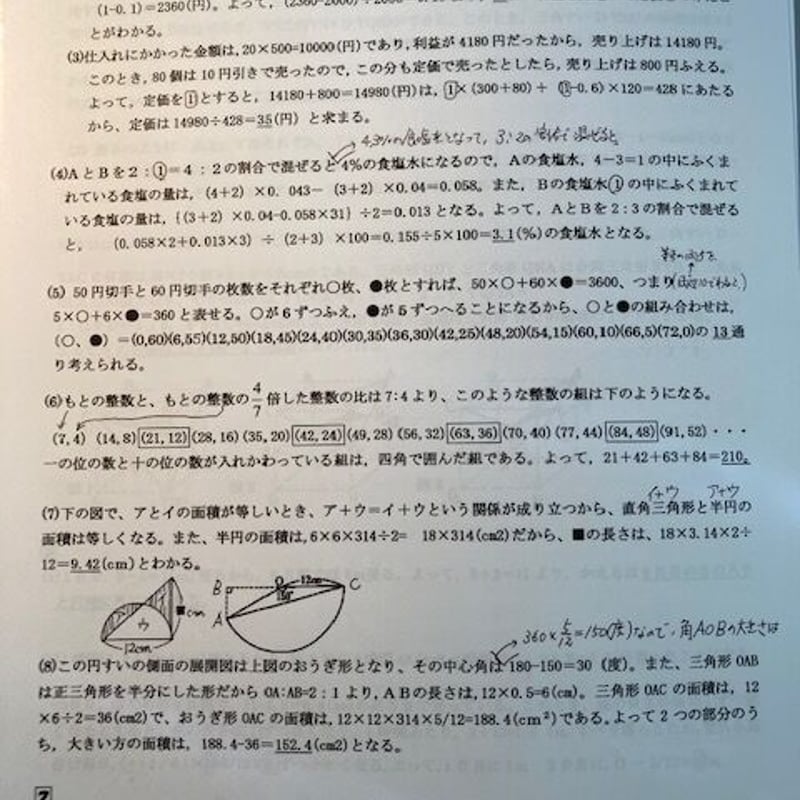 (1-0.1)=2360(円)。よって，(2360-2000)÷2000
とがわかる。
(3)仕入れにかかった金額は,20×500=10000(円)であり,利益が4180円だったから，売り上げは14180円。
このとき,80個は10円引きで売ったので,この分も定価で売ったとしたら,売り上げは800円ふえる。
よって，定価を①とすると，14180+800=14980(円)は,①×(300+80)+ (①-0.6)×120=428にあたる
から，定価は14980÷428=35(円) と求まる。
4.3%の食塩水となって，3:2の割合で混ぜると
(4)AとBを2:①=4:2の割合で混ぜると4%の食塩水になるので，Aの食塩水，4-3=1の中にふくま
れている食塩の量は，(4+2) ×0. 043- (3+2) ×0.04=0.058。また，Bの食塩水①の中にふくまれて
いる食塩の量は,{(3+2) ×0.04-0.058×31} ÷2=0.013となる。よって，AとBを2:3の割合で混ぜる
と， (0.058×2+0.013×3) ÷ (2+3) ×100=0.155÷5×100=3.1(%)の食塩水となる。
(5) 50円切手と60円切手の枚数をそれぞれ〇枚、●枚とすれば、50×〇+60×●=3600、つまり
5×〇+6×●=360と表せる。〇が6ずつふえ，●が5ずつへることになるから、〇と●の組み合わせは，
(〇、●) =(0,60)(6,55)(12,50)(18,45)(24,40)(30,35)(36,30)(42,25)(48,20)(54,15)(60,10)(66,5)(72,0)の13通
り考えられる。
(6)もとの整数と、もとの整数の4/7倍した整数の比は7:4より、このような整数の組は下のようになる。
(7,4) (14,8)(21,12)(28,16)(35,20)(42,24)(49,28)(56,32)(63,36)(70,40)(77,44)(84,48)(91,52)・・・
一の位の数と十の位の数が入れかわっている組は，四角で囲んだ組である。よって，21+42+63+84=210。
イ+ウ ア+ウ
(7)下の図で、アとイの面積が等しいとき、ア+ウ=イ+ウという関係が成り立つから、直角三角形と半円の
面積は等しくなる。また、半円の面積は,6×6×314÷2= 18×314(cm2)だから、■の長さは、18×3.14×2÷
12=9.42(cm)とわかる。
ウ ■cm 12cm
B A C 12cm
360×5/12=150(度)なので，角AOBの大きさは
(8)この円すいの側面の展開図は上図のおうぎ形となり、その中心角は180-150=30 (度)。また、三角形OAB
は正三角形を半分にした形だからOA:AB=2:1より、ABの長さは,12×0.5=6(cm)。三角形OACの面積は，12
×6÷2=36(cm2)で、おうぎ形OACの面積は,12×12×314×5/12=188.4(cm²)である。よって2つの部分のう
ち，大きい方の面積は，188.4-36=152.4(cm2)となる。
7